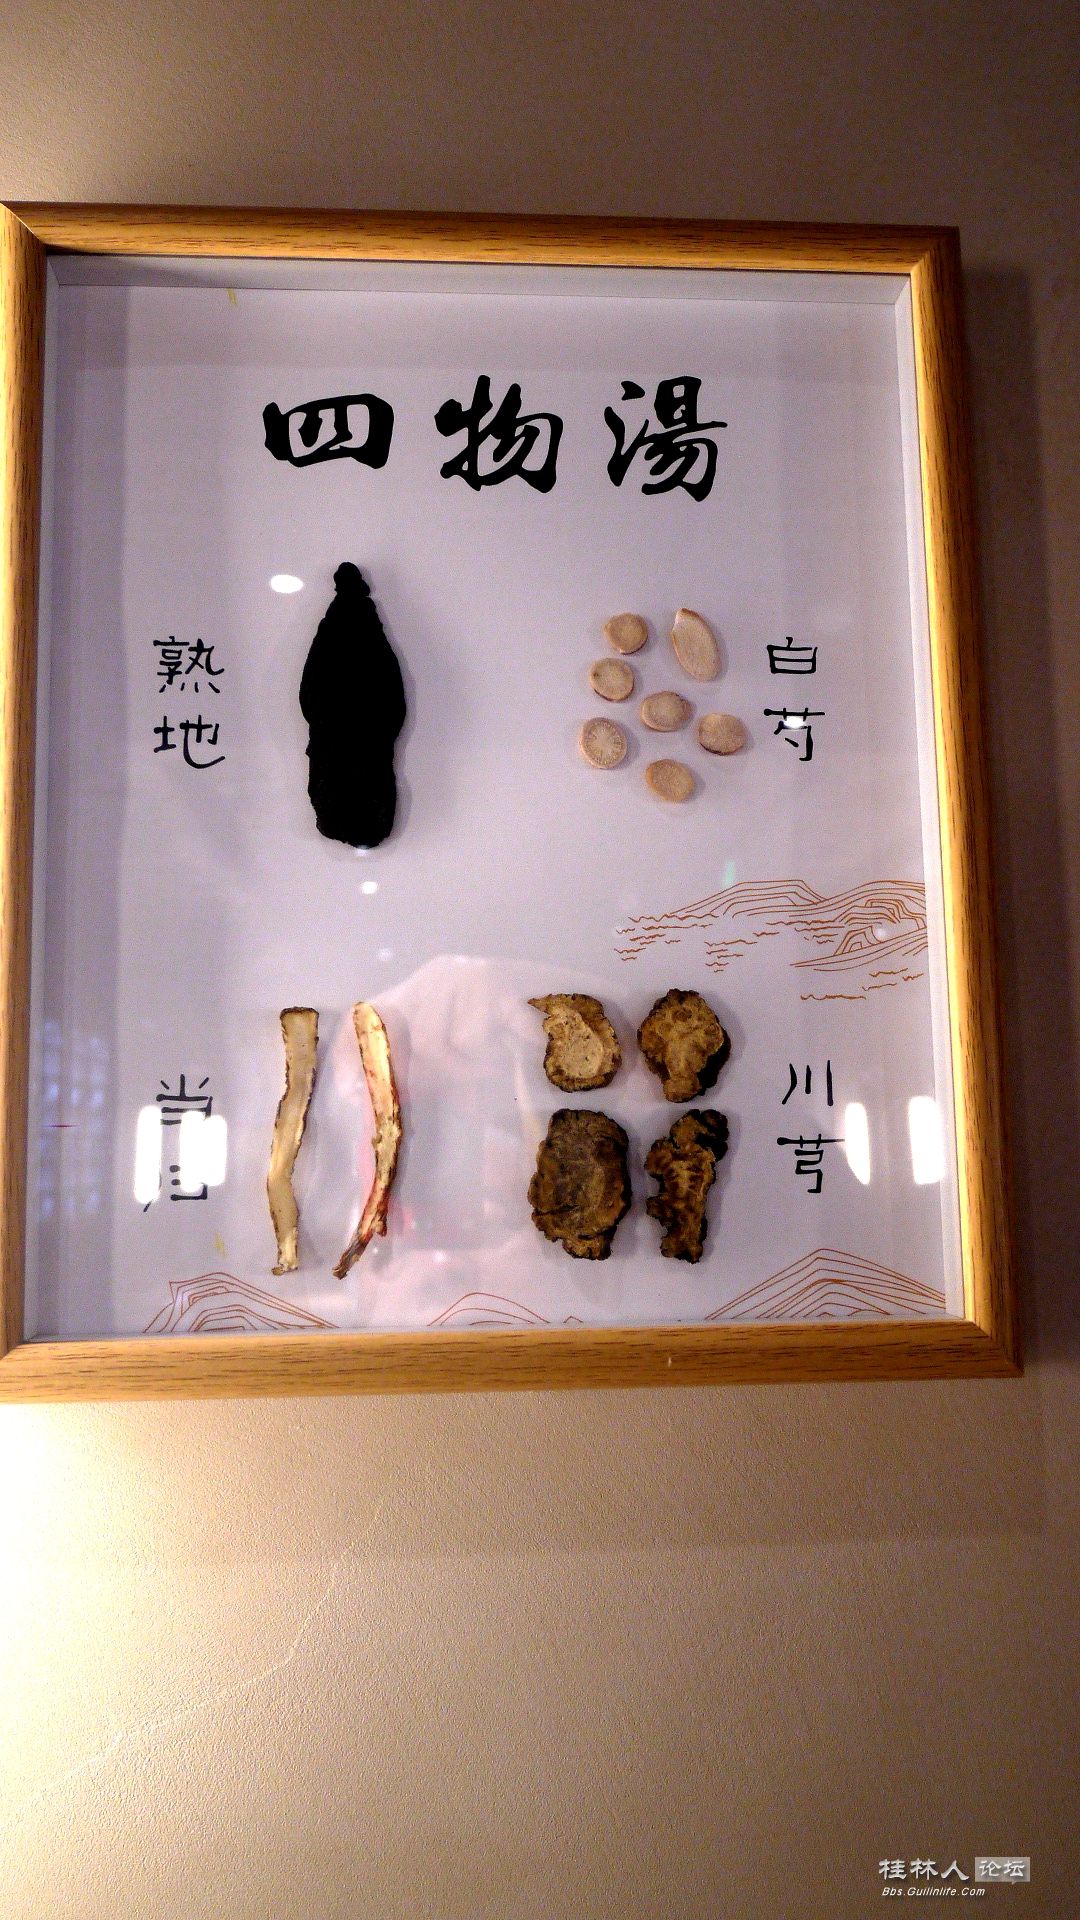 四物湯
熟地
白芍
川芎
桂林人论坛
Bbs.Guilinlife.Com